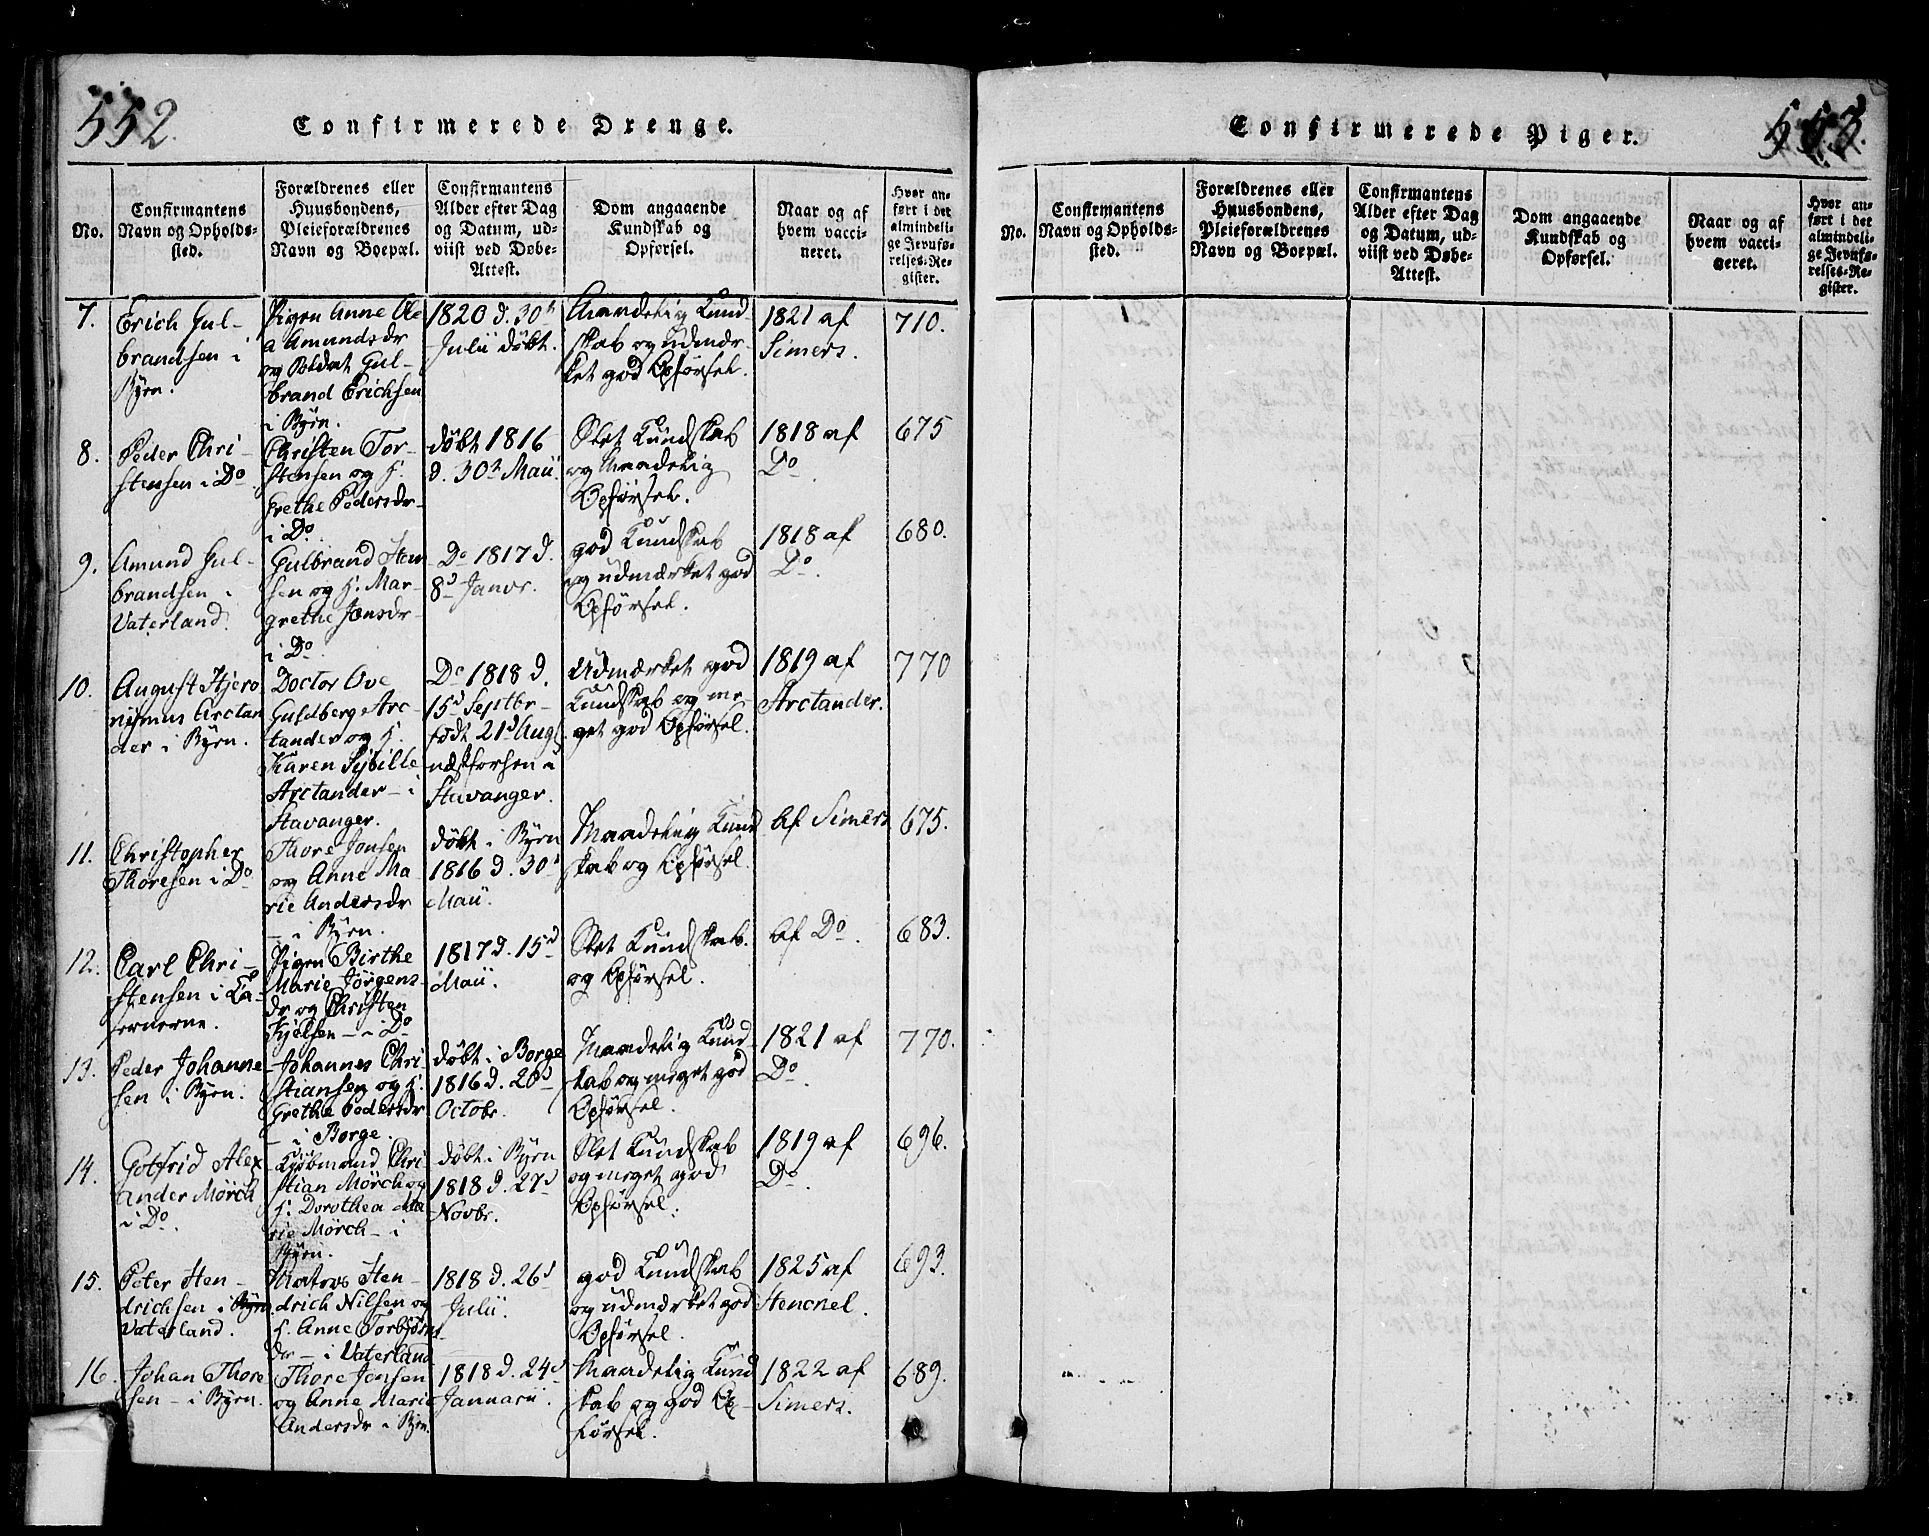 552.
Confirmerede Drenge.
No.
Confirmantens Navn og Opholds-sted.
Forældrenes eller Huusbondens, Pleieforældrenes Navn og Boepæl.
Confirmantens Alder efter Dag og Datum, ud-viist ved Døbe-Attest.
Dom angaaende Kundskab og Opførsel.
Naar og af hvem vacci-neret.
Hvor an-ført i det almindeli-ge Jevnfø-relses-Re-gister.
7.
Erich Gul-
brandsen i
Byen.
Pigen Anne Ole
a Amundsdr
og Soldat Gul-
brand Erichsen
i Byen.
1820 d. 30t
Julii døbt.
Maadelig Kund-
skab og udmær-
ket god Opførsel.
1821 af
Simers.
710.
8.
Peder Chri-
stensen i Do
Christen Tor-
stensen og H.
Grethe Pedersdr
i Do.
døbt 1816
d. 30t Maii.
Slet Kundskab
og Maadelig
Opførsel.
1818 af
Do
675
9.
Amund Gul-
brandsen i
Vaterland.
Gulbrand Hen
sen og H. Mar-
grethe Jensdr
i Do
Do 1817 d.
8d Janvr.
god Kundskab
og udmærket god
Opførsel.
1818 af
Do.
680.
10.
August Hjero
nymus Arctan
der i Byen.
Doctor Ove
Guldberg Arc-
tander og H.
Karen Sybille
Arctander - i
Stavanger.
Do 1818 d.
15d Septbr -
født 21d Aug
næstforhen i
Stavanger.
Udmærket god
Kundskab og me
get god Opførsel.
1819 af
Arctander.
770
11.
Christopher
Thoresen i Do
Thore Jensen
og Anne Ma
rie Andersdr
- i Byen.
døbt i Byen
1816 d. 30t
Maii.
Maadelig Kund
skab og Opførsel.
af Simers
675.
12.
Carl Chri-
stensen i Ca-
sernerne.
Pigen Birthe
Marie Jørgens-
dr og Christen
Kjelsen - i Do
1817 d. 15d
Maii.
Slet Kundskab
og Opførsel.
af Do.
683.
13.
Peder Johanne
sen i Byen.
Johannes Chri-
stiansen og H.
Grethe Pedersdr
- i Borge.
døbt i Borge
1816 d. 20d
Octobr.
Maadelig Kund-
skab og meget god
Opførsel.
1821 af
Do.
770.
14.
Gotfrid Alex
ander Mörch
i Do.
Kjøbmand Chri
stian Mörch og
H. Dorothea Ma
rie Mörch - i
Byen.
døbt i Byen
1818 d. 27d
Novbr.
Slet Kundskab
og meget god
Opførsel.
1819 af
Do.
696.
15.
Peter Hen-
drichsen i Byen
Vaterland.
Matros Hen-
drich Nilsen og
H. Anne Torbjørns
dr - i Vaterland
1818 d. 26d
Julii.
god Kundskab
og udmærket god
Opførsel.
1825 af
693.
16.
Johan Thore
sen - i Byen.
Thore Jensen
og Anne Marie
Andersdr i Byen.
1818 d. 24d
Januarii.
Maadelig Kund
skab og god Op-
førsel.
1822 af
Simers.
689.
553.
Confirmerede Piger.
No.
Confirmantens Navn og Opholds-sted.
Forældrenes eller Huusbondens, Pleieforældrenes Navn og Boepæl.
Confirmantens Alder efter Dag og Datum, ud-viist ved Døbe-Attest.
Dom angaaende Kundskab og Opførsel.
Naar og af hvem vacci-neret.
Hvor an-ført i det almindeli-ge Jevnfø-relses-Re-gister.